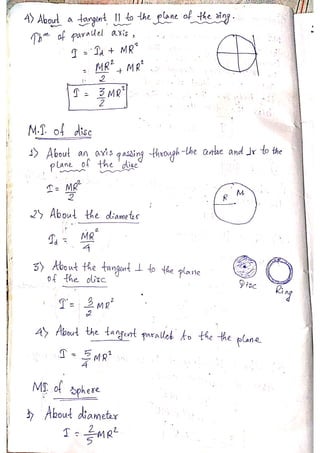 4) About a tangent || to the plane of the ring.
Th^m of parallel axis,
I = Id + MR²
= MR²/2 + MR²
I = 3/2 MR²
M.I. of disc
1) About an axis passing through the centre and ⊥r to the plane of the disc
I = MR²/2
R M
2) About the diameter
Id = MR²/4
3) About the tangent ⊥ to the plane of the disc
Disc
Ring
I = 3/2 MR²
4) About the tangent parallel to the the plane
I = 5/4 MR²
MI of sphere
1) About diameter
I = 2/5 MR²